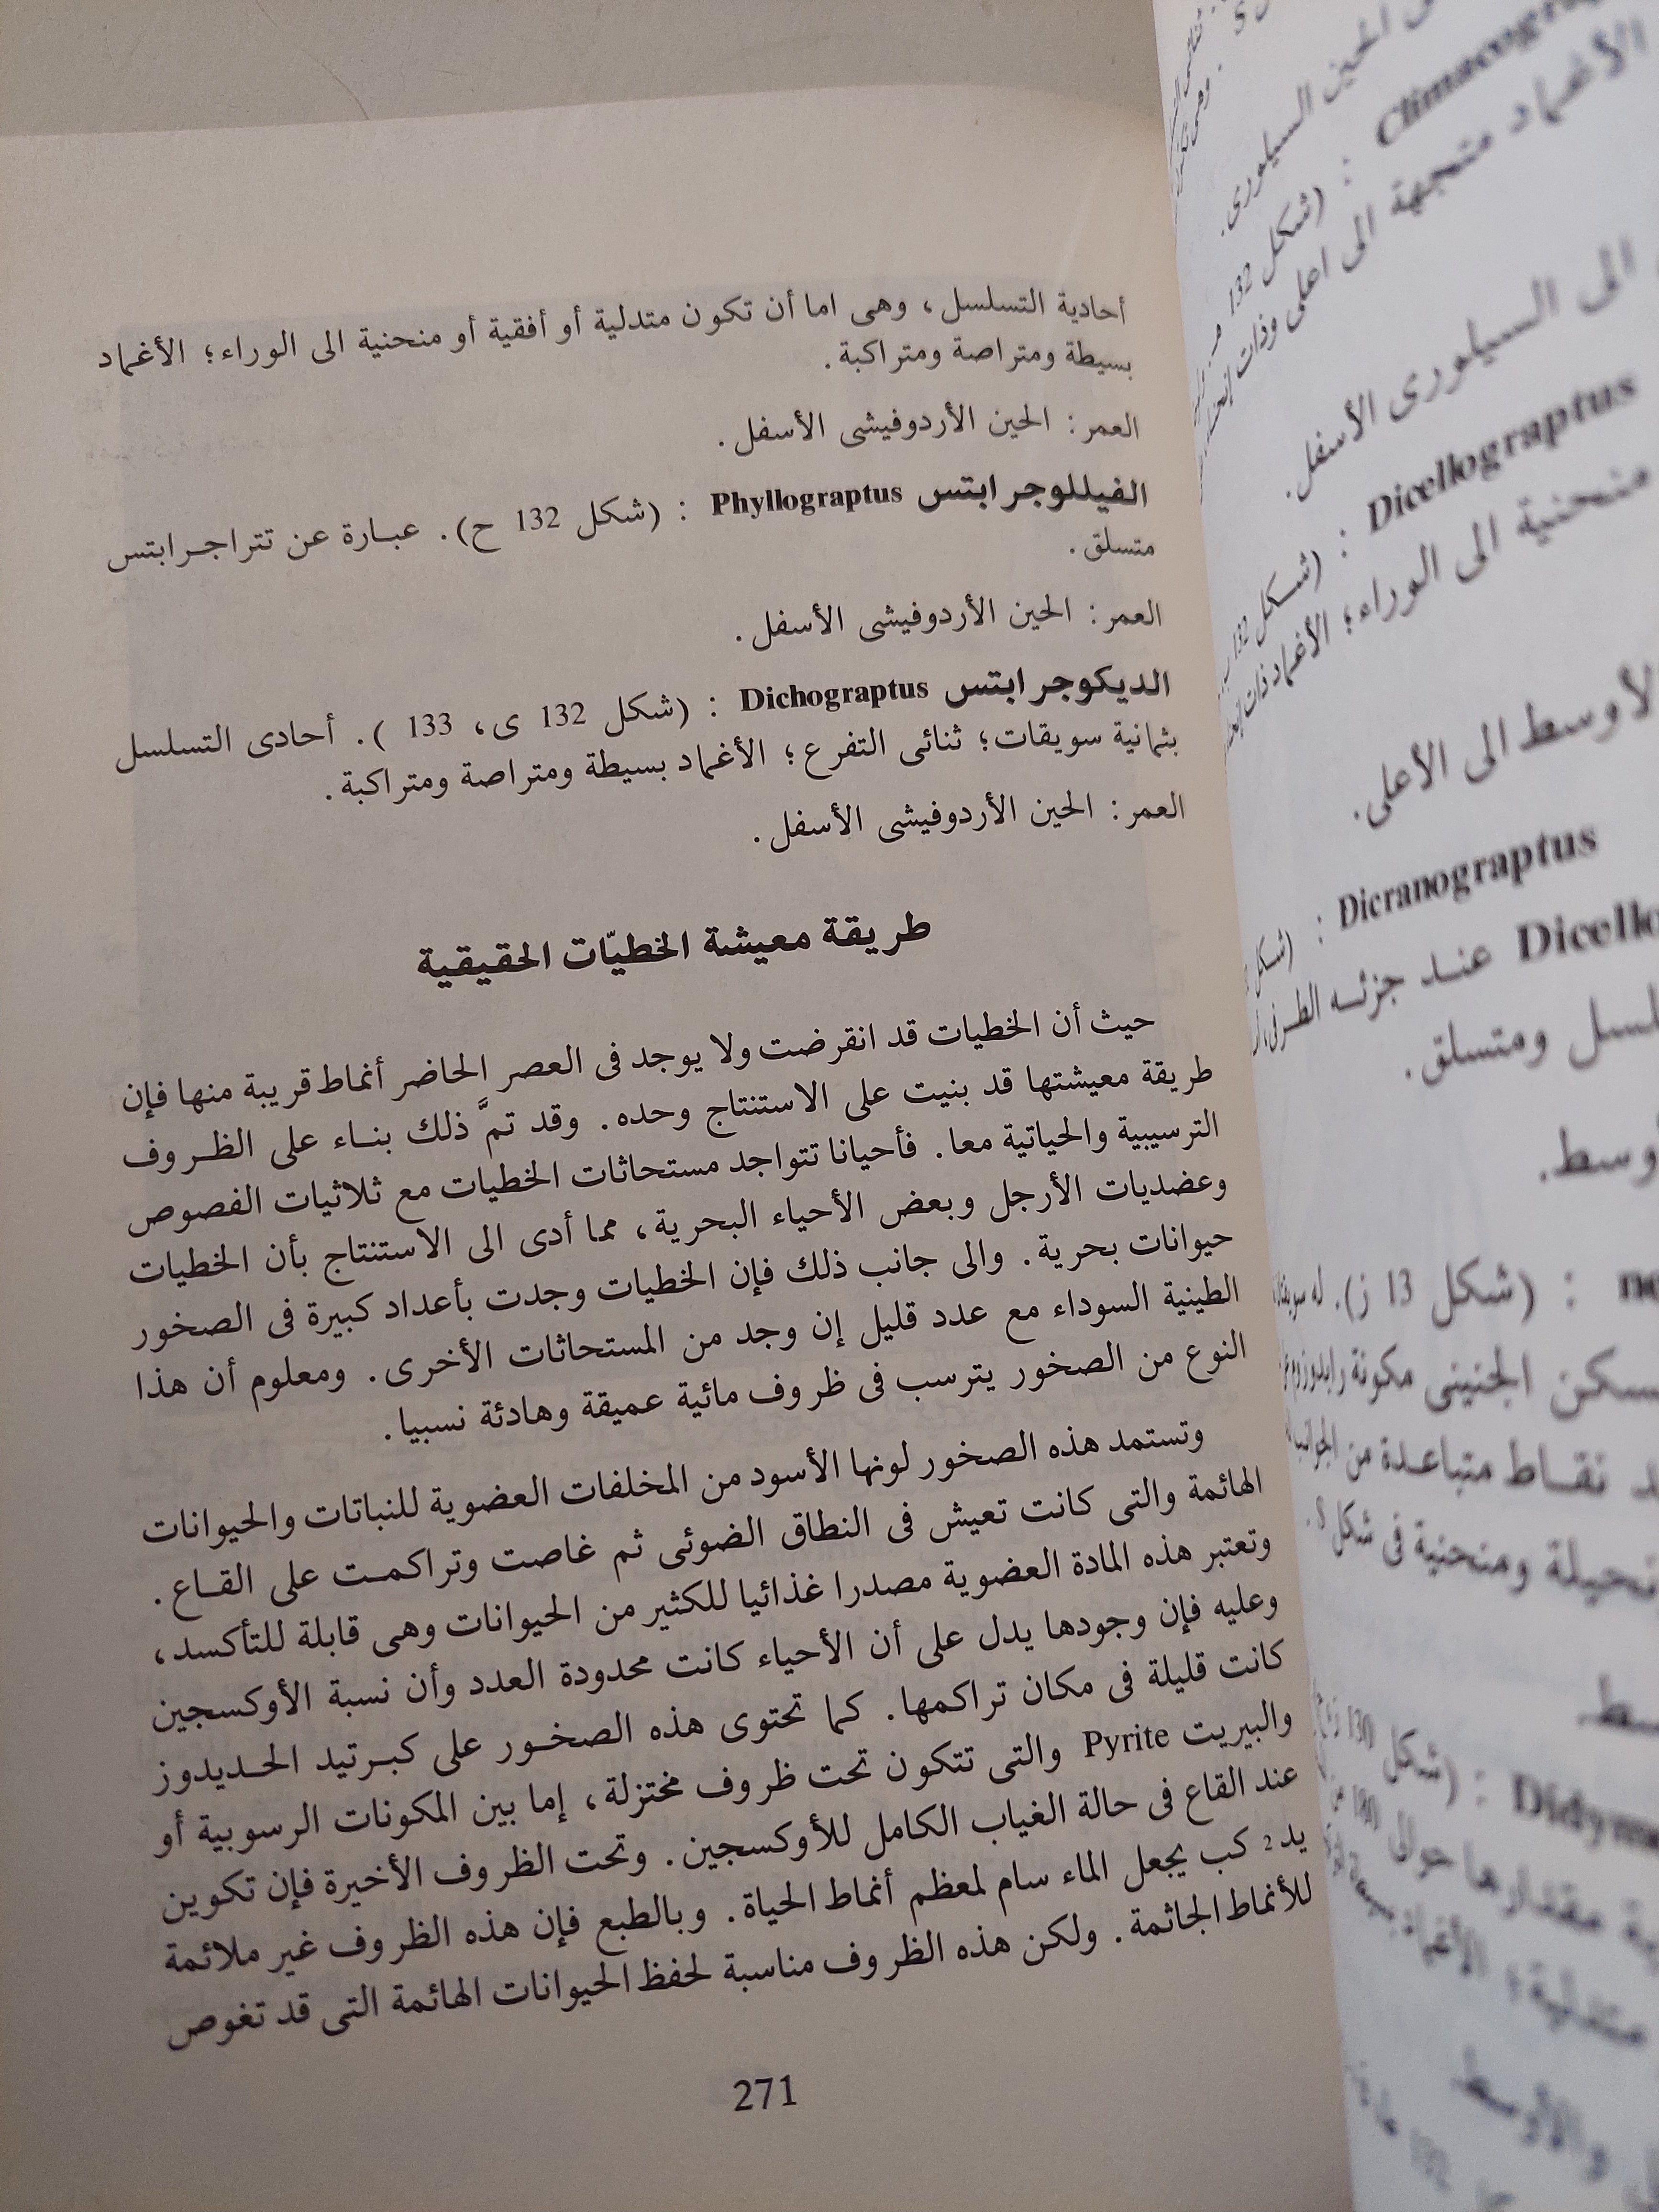 أحادية التسلسل، وهى اما أن تكون متدلية أو أفقية أو منحنية الى الوراء؛ الأغماد
بسيطة ومتراصة ومتراكبة.
العمر: الحين الأردوفيشى الأسفل.
الفيللوجرابتس Phyllograptus : (شكل 132 ح). عبارة عن تتراجرابتس
متسلق.
العمر: الحين الأردوفيشى الأسفل.
الديكوجرابتس Dichograptus : (شكل 132 ى، 133 ). أحادى التسلسل
بثمانية سويقات؛ ثنائى التفرع؛ الأغماد بسيطة ومتراصة ومتراكبة.
العمر: الحين الأردوفيشى الأسفل.
طريقة معيشة الخطيّات الحقيقية
حيث أن الخطيات قد انقرضت ولا يوجد فى العصر الحاضر أنماط قريبة منها فإن
طريقة معيشتها قد بنيت على الاستنتاج وحده. وقد تمَّ ذلك بناء على الظروف
الترسيبية والحياتية معا. فأحيانا تتواجد مستحاثات الخطيات مع ثلاثيات الفصوص
وعضديات الأرجل وبعض الأحياء البحرية، مما أدى الى الاستنتاج بأن الخطيات
حيوانات بحرية. والى جانب ذلك فإن الخطيات وجدت بأعداد كبيرة فى الصخور
الطينية السوداء مع عدد قليل إن وجد من المستحاثات الأخرى. ومعلوم أن هذا
النوع من الصخور يترسب فى ظروف مائية عميقة وهادئة نسبيا.
وتستمد هذه الصخور لونها الأسود من المخلفات العضوية للنباتات والحيوانات
الهائمة والتى كانت تعيش فى النطاق الضوئى ثم غاصت وتراكمت على القاع.
وتعتبر هذه المادة العضوية مصدرا غذائيا للكثير من الحيوانات وهى قابلة للتأكسد،
وعليه فإن وجودها يدل على أن الأحياء كانت محدودة العدد وأن نسبة الأوكسجين
كانت قليلة فى مكان تراكمها. كما تحتوى هذه الصخور على كبرتيد الحديدوز
والبيريت Pyrite والتى تتكون تحت ظروف مختزلة، إما بين المكونات الرسوبية أو
عند القاع فى حالة الغياب الكامل للأوكسجين. وتحت الظروف الأخيرة فإن تكوين
يد2 كب يجعل الماء سام لمعظم أنماط الحياة. وبالطبع فإن هذه الظروف غير ملائمة
للأنماط الجاثمة. ولكن هذه الظروف مناسبة لحفظ الحيوانات الهائمة التى قد تغوص
271
الحين السيلورى.
(شكل 132 : Climacogra
الأغماد متجهة الى اعلى وذات
الى السيلورى الأسفل.
(شكل 132 : Dicellograptus
منحنية الى الوراء؛ الأغماد ذات
الأوسط الى الأعلى.
: Dicranograptus
Dicello عند جزئه
ومتسلق.
(شكل 13 ز). له
الجنينى مكونة
نقاط متباعدة من
نحيلة ومنحنية فى شكل
(شكل : Didym
مقدارها حوالى 180
متدلية؛ الأغماد
والأوسط
132